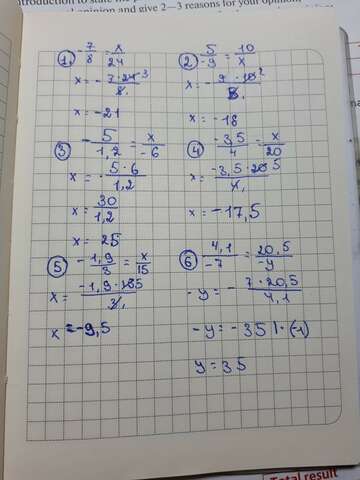 introduction to state the p
opinion and give 2–3 reasons for your opinion,
① -7/8 = x/24
x = - 7·24 3/8.
x = -21
② 5/-9 = 10/x
x = - 9·10 2/5.
x = -18
③ -5/1,2 = x/-6
x = 5·6/1,2
x = 30/1,2
x = 25
④ -3,5/4 = x/20
x = -3,5·20 5/4.
x = -17,5
⑤ -1,9/3 = x/15
x = -1,9·15 5/3.
x = -9,5
⑥ 4,1/-7 = 20,5/-y
-y = - 7·20,5/4,1
-y = -35 |·(-1)
y = 35
Total result